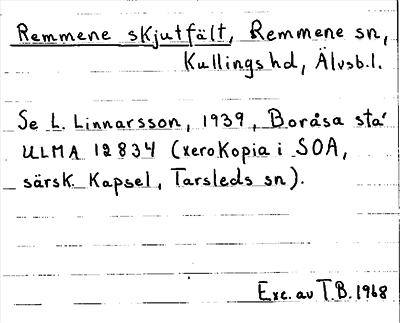 Remmene skjutfält, Remmene sn,
Kullings hd, Älvsb.l.
Se L. Linnarsson, 1939, Boråsa sta'
ULMA 12834 (xerokopia i SOA,
särsk. Kapsel, Tarsleds sn).
Exc. av T.B. 1968